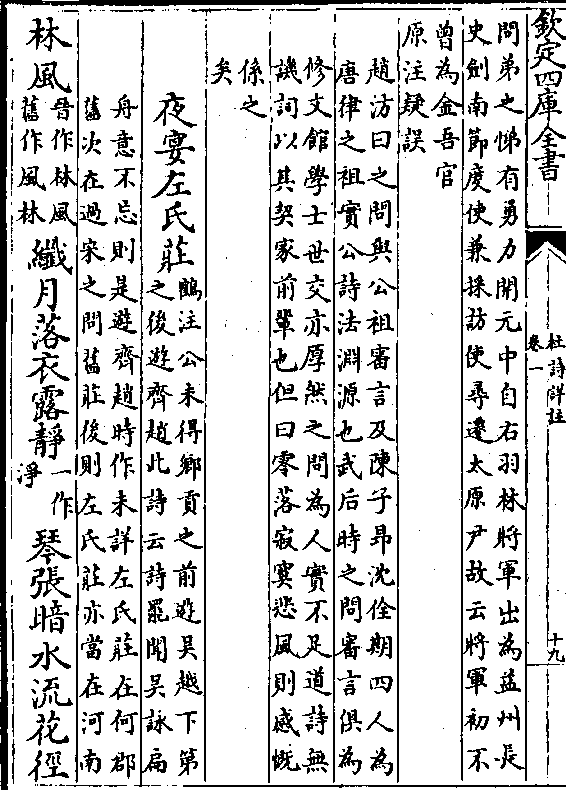 欽定四庫全書
杜詩詳註
卷一
十九
問弟之悌有勇力開元中自右羽林將軍出為益州長
史劍南節度使兼採訪使尋遷太原尹故云將軍初不
曾為金吾官
原注疑誤
趙汸曰之問與公祖審言及陳子昻沈佺期四人為
唐律之祖實公詩法淵源也武后時之問審言俱為
修文館學士世交亦厚然之問為人實不足道詩無
譏詞以其契家前輩也但曰零落寂寞悲風則感慨
係之
矣
夜宴左氏莊
鶴注公未得鄉貢之前遊吳越下第
之後遊齊趙此詩云詩罷聞吳詠扁
舟意不忘則是遊齊趙時作未詳左氏莊在何郡
舊次在過宋之問舊莊後則左氏莊亦當在河南
林風
晉作林風
舊作風林
纖月落衣露靜
一作
淨
琴張暗水流花徑